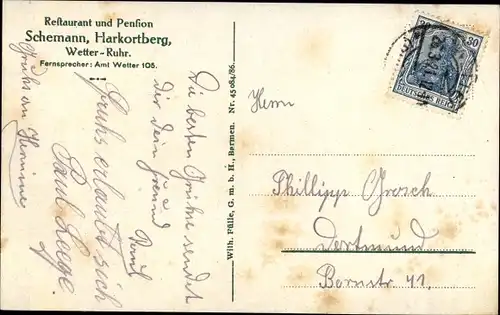 Restaurant und Pension
Schemann, Harkortberg,
Wetter-Ruhr.
Fernsprecher: Amt Wetter 108.
Die besten Grüße sendet
dir dein Freund
Paul
Gruhs erlaubt sich
Paul Lage.
Gruhs an Hermine
Wilh. Fülle, G. m. b. H., Barmen. Nr. 45 084/86.
30
DEUTSCHES REICH
Herrn
Phillipp Grosch
Dortmund
Bornstr 41.